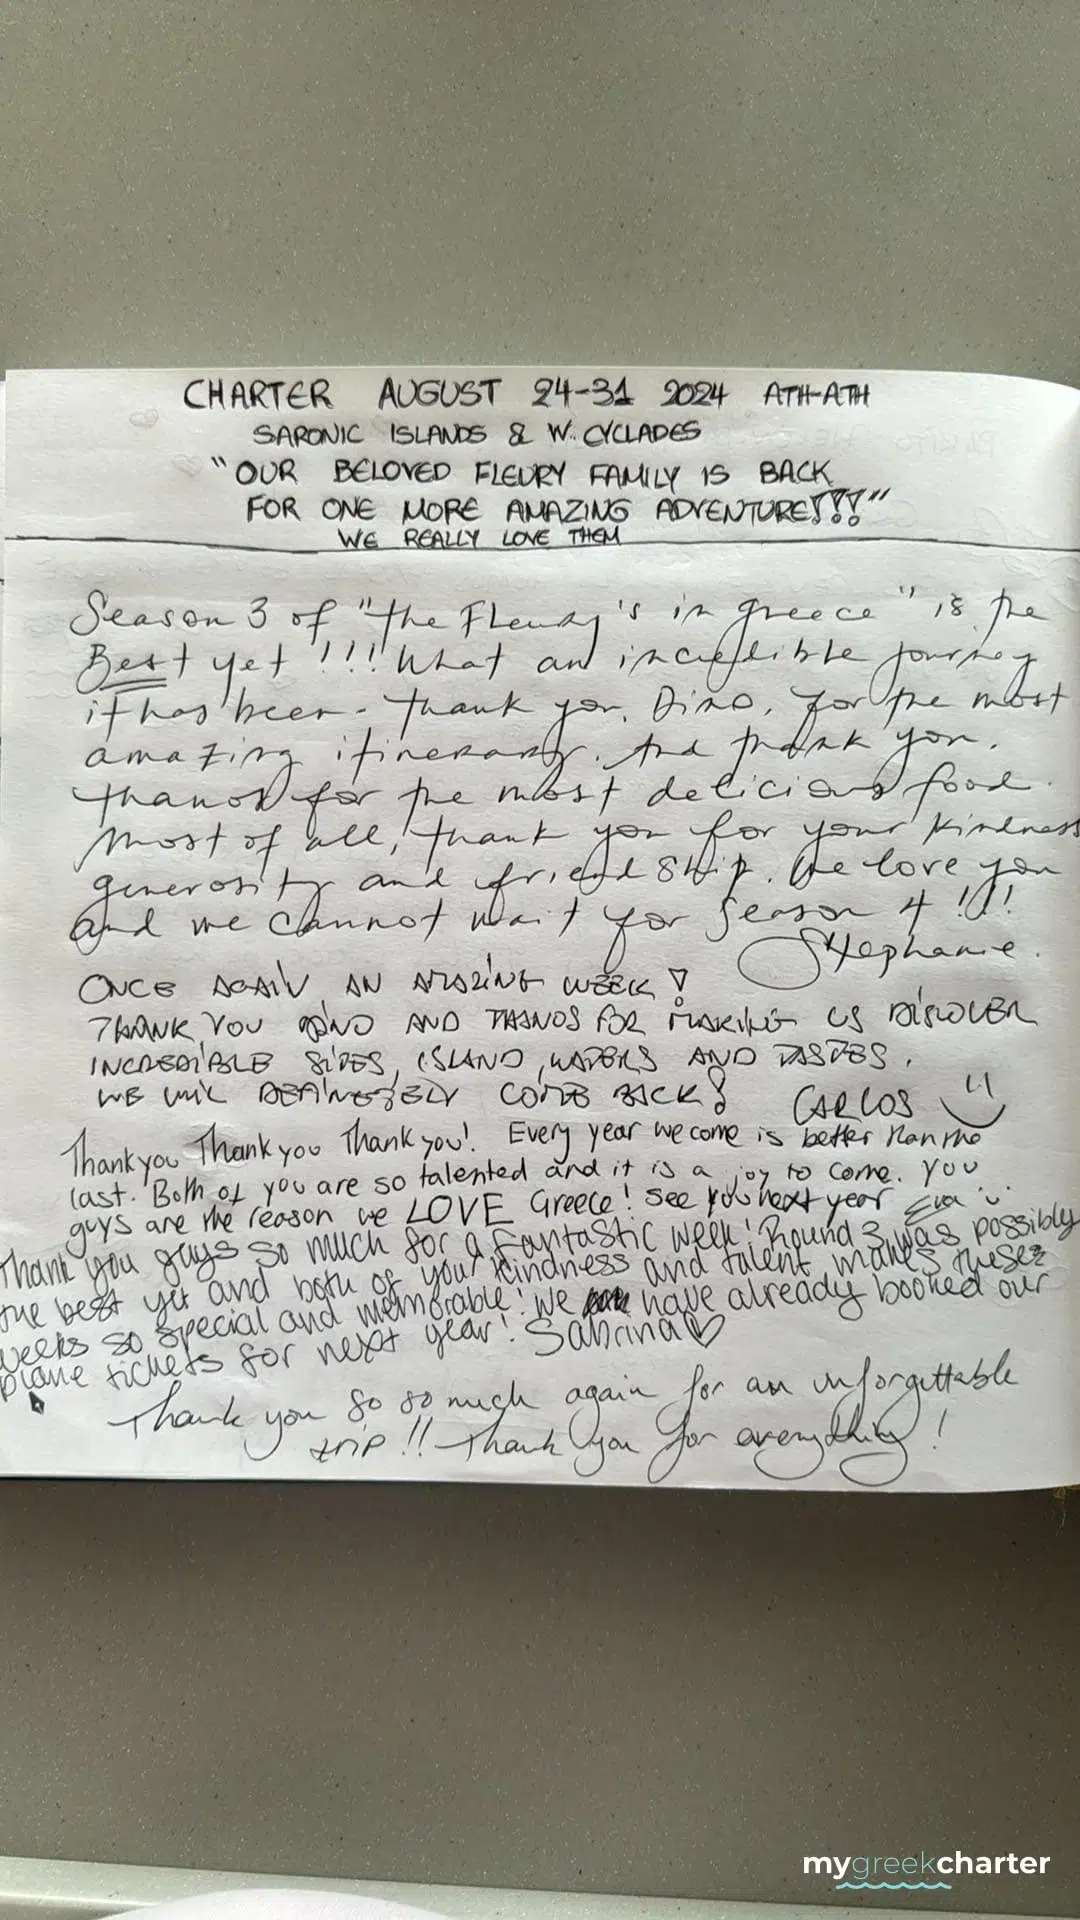 CHARTER AUGUST 24-31 2024 ATH-ATH
SARONIC ISLANDS & W. CYCLADES
"OUR BELOVED FLEURY FAMILY IS BACK
FOR ONE MORE AMAZING ADVENTURE!!!"
WE REALLY LOVE THEM
Season 3 of "the Fleury's in greece" is the
Best yet !!! What an incredible journey
it has been. Thank you, Dino, for the most
amazing itinerary. And thank you,
thanos for the most delicious food.
Most of all, thank you for your kindness
generosity and friendship. We love you
and we cannot wait for Season 4 !!!
Stephanie.
ONCE AGAIN AN AMAZING WEEK !
THANK YOU DINO AND THANOS FOR MAKING US DISCOVER
INCREDIBLE SITES, ISLAND, WATERS AND TASTES.
WE WILL DEFINETELY COME BACK! CARLOS
Thank you Thank you Thank you! Every year we come is better than the
last. Both of you are so talented and it is a joy to come. You
guys are the reason we LOVE Greece! See you next year Eva
Thank you guys so much for a fantastic week! Round 3 was possibly
the best yet and both of your kindness and talent makes these
weeks so special and memorable! We have already booked our
plane tickets for next year! Sabrina ♡
Thank you so so much again for an unforgettable
trip!! Thank you for everything!
mygreekcharter